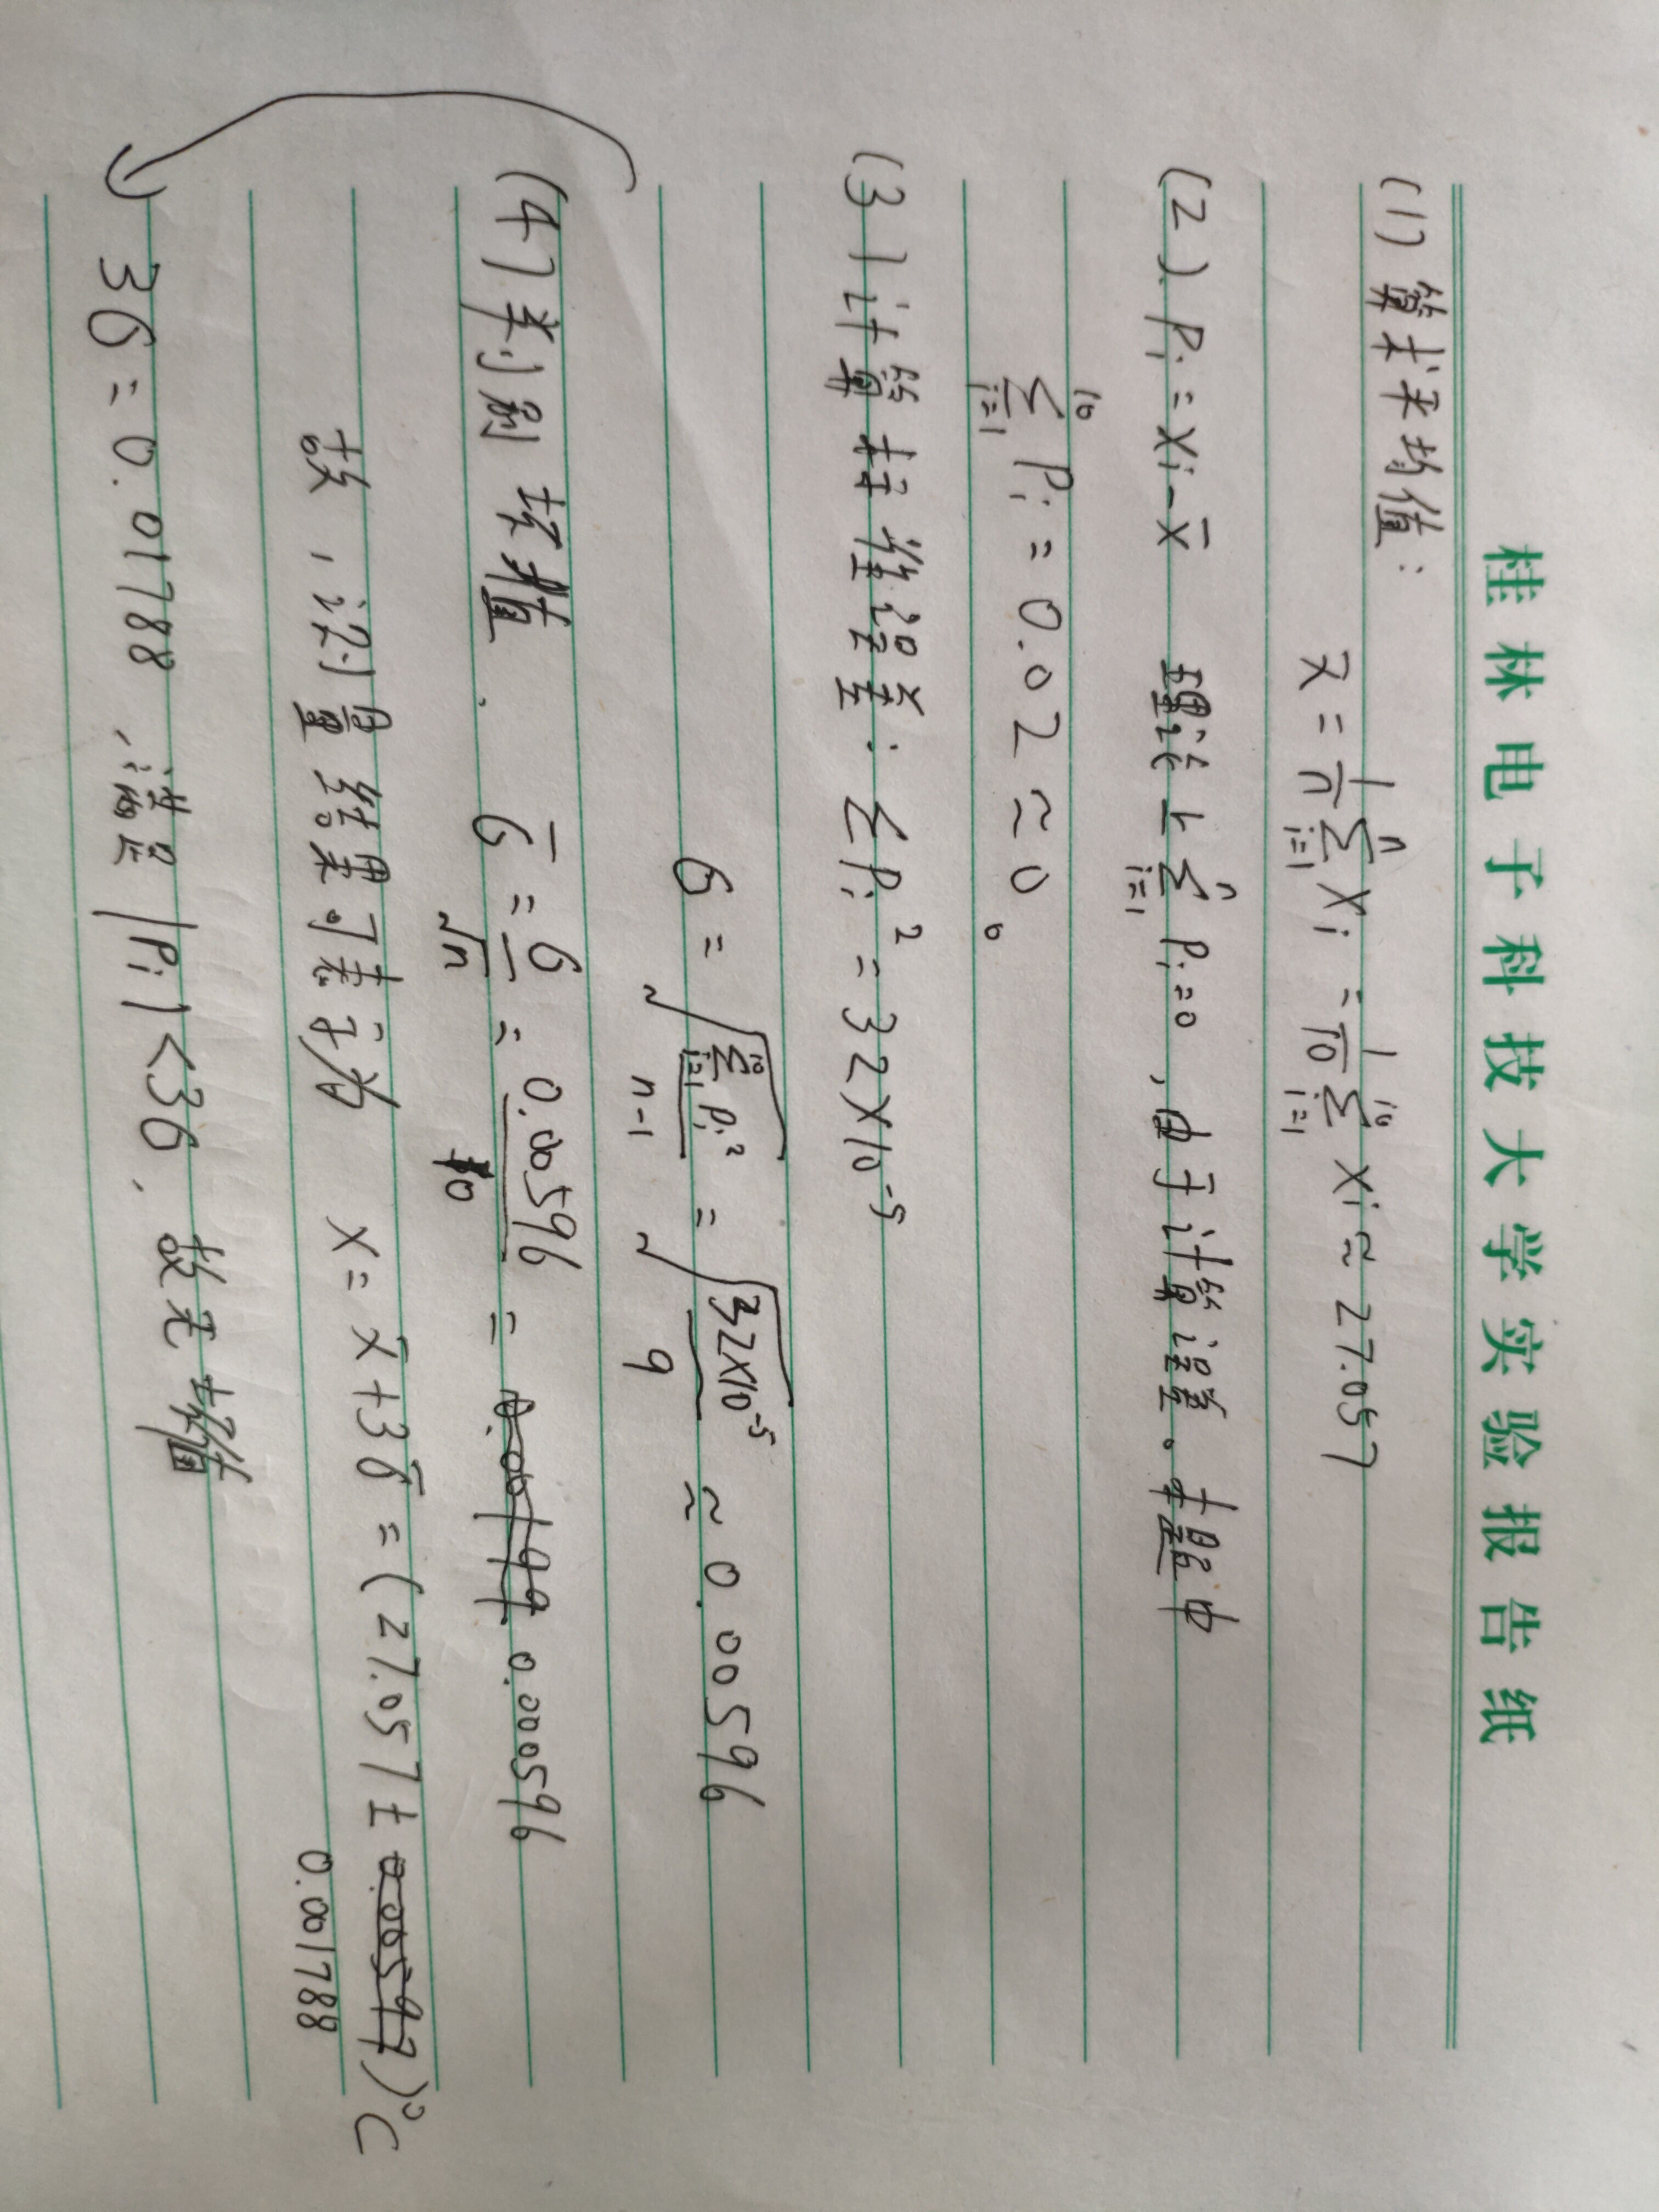 桂林电子科技大学实验报告纸
(1) 算术平均值:
x̄ = 1/n ∑ⁿᵢ₌₁ Xᵢ = 1/10 ∑¹⁰ᵢ₌₁ Xᵢ ≈ 27.057
(2) Pᵢ = Xᵢ - x̄ 理论上 ∑ⁿᵢ₌₁ Pᵢ=0 , 由于计算误差。本题中
∑¹⁰ᵢ₌₁ Pᵢ = 0.02 ≈ 0 。
(3) 计算标准误差: ∑Pᵢ² = 32×10⁻⁵
σ = √(∑¹⁰ᵢ₌₁ Pᵢ² / n-1) = √(32×10⁻⁵ / 9) ≈ 0.00596
(4) 判别坏值. σ̄ = σ/√n = 0.00596/10 = 0.000596
故,测量结果可表示为 x = x̄+3σ̄ = (27.057± 0.001788)°C
3σ = 0.01788、满足 |Pᵢ|<3σ、故无坏值